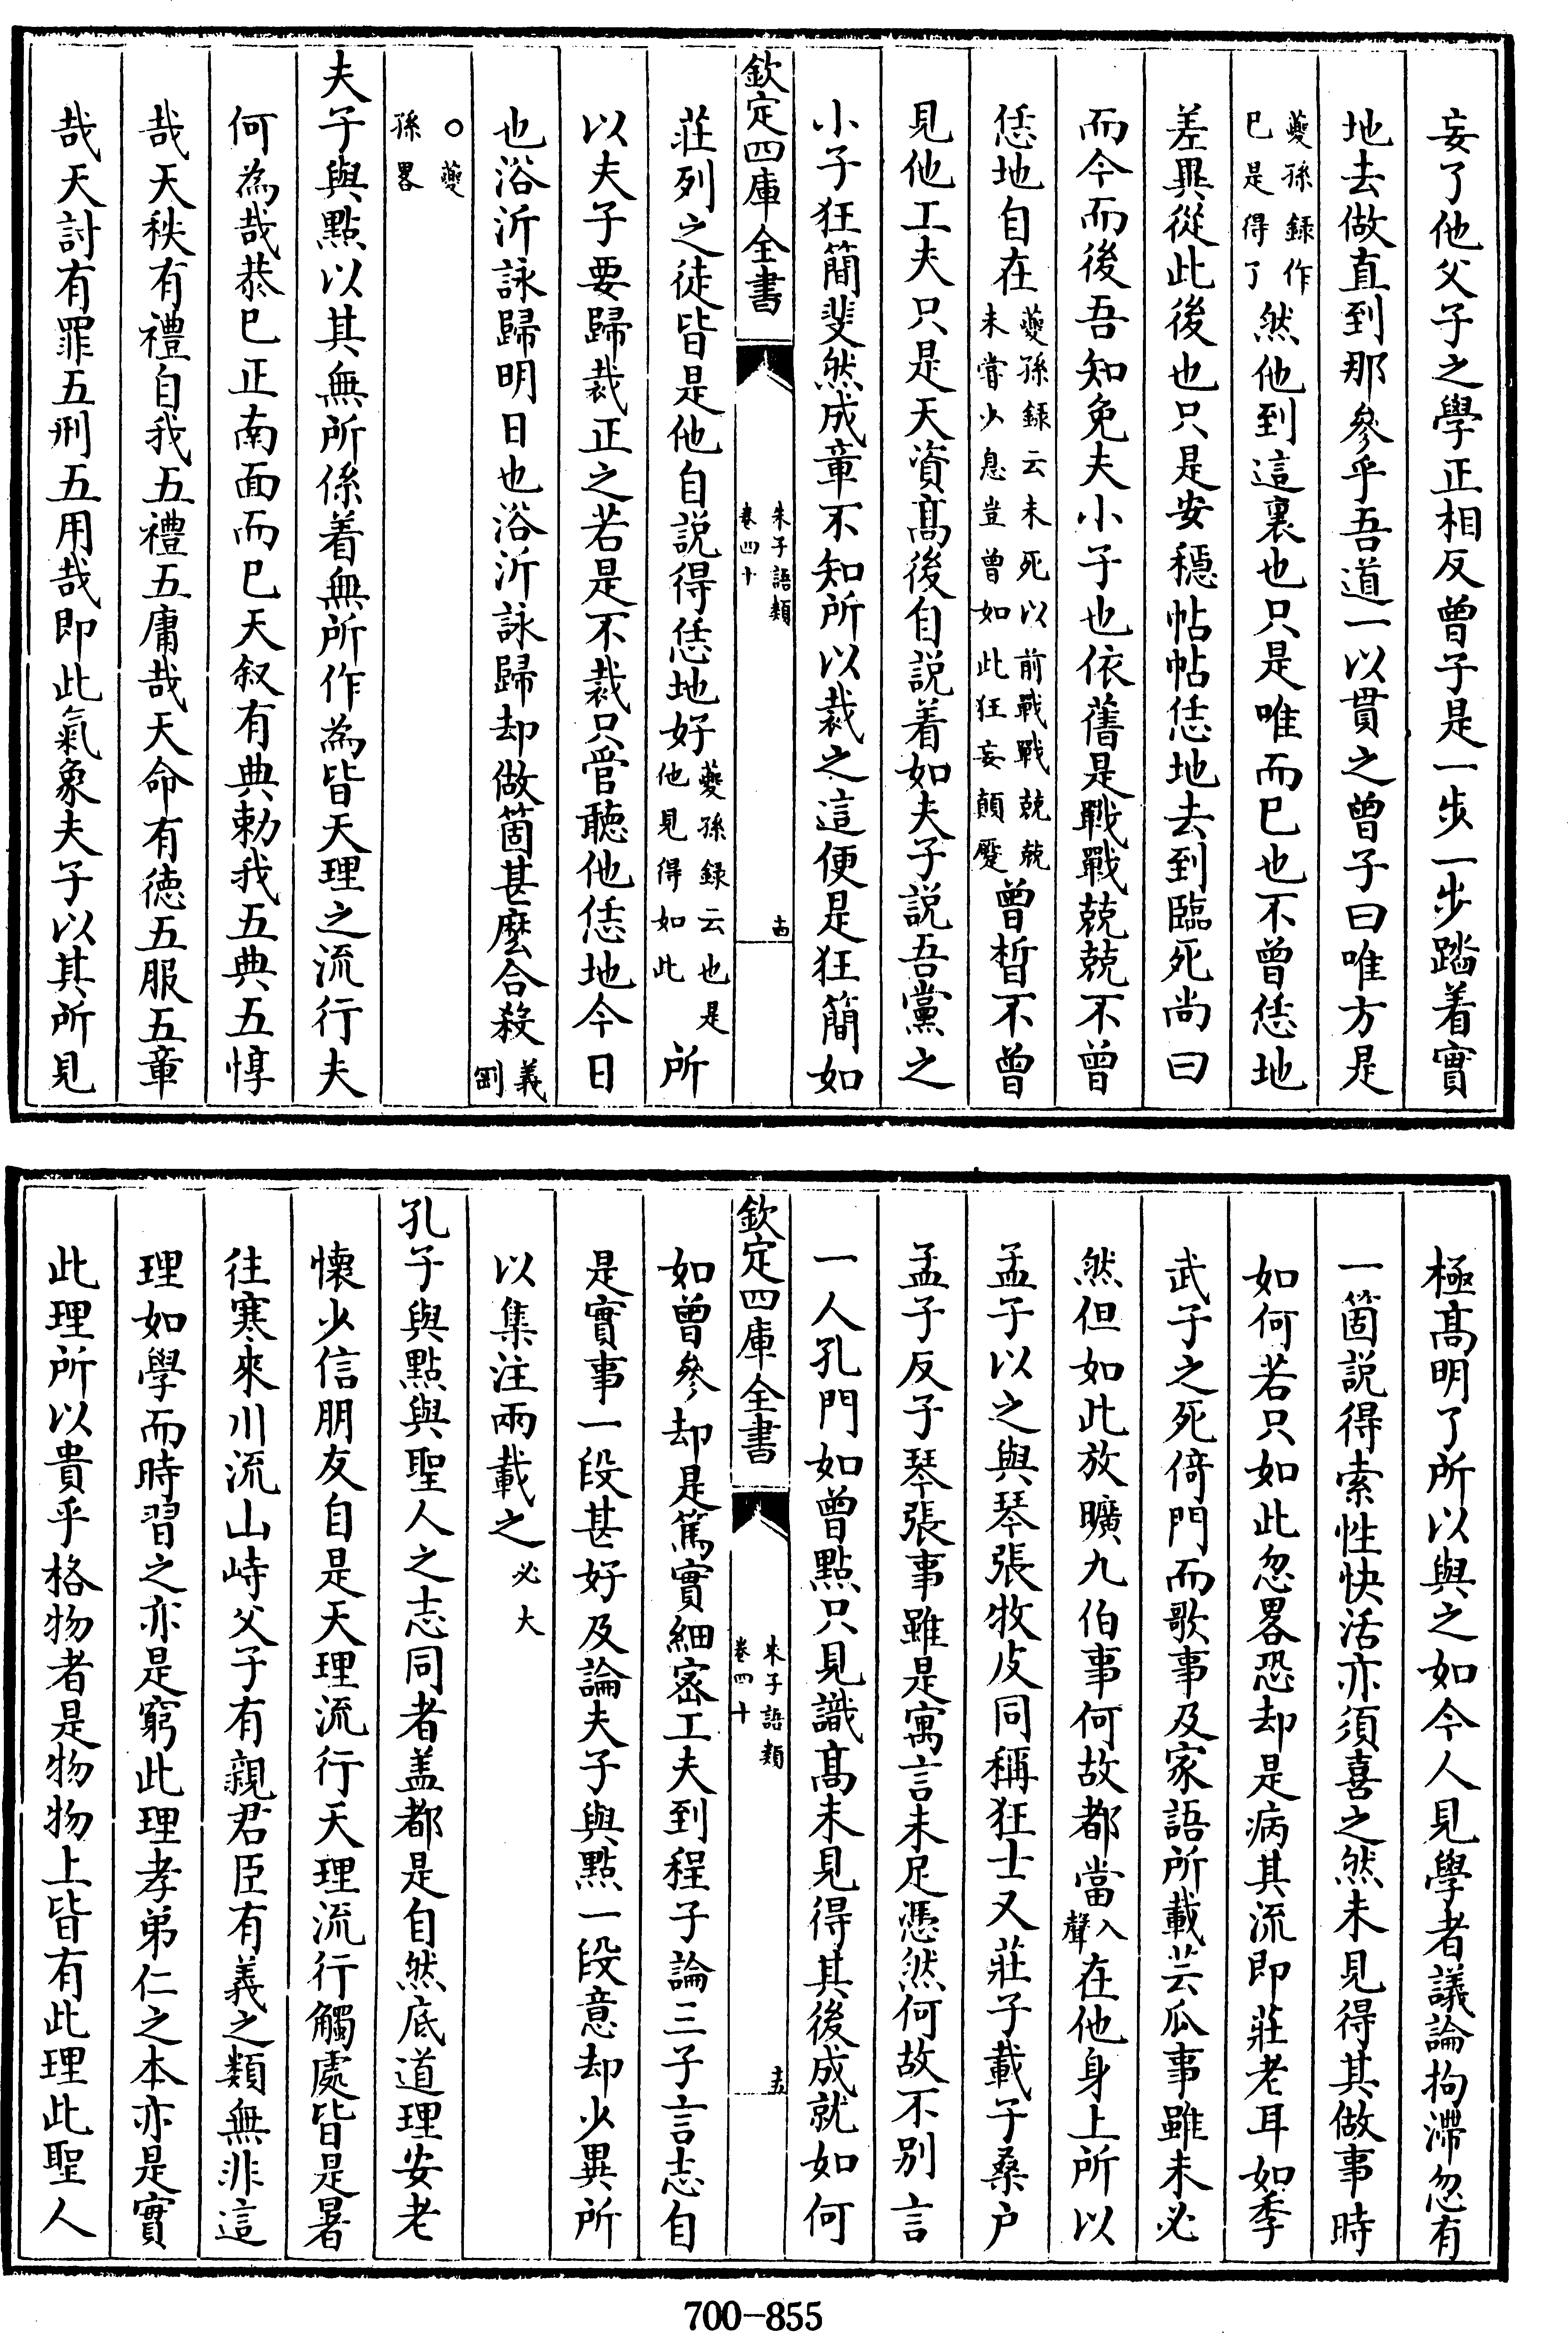 妄了他父子之學正相反曾子是一步一步踏着實
地去做直到那參乎吾道一以貫之曾子曰唯方是
夔孫録作
已是得了
然他到這裏也只是唯而已也不曾恁地
差異從此後也只是安穩帖帖恁地去到臨死尚曰
而今而後吾知免夫小子也依舊是戰戰兢兢不曾
恁地自在
夔孫録云未死以前戰戰兢兢
未嘗少息豈曾如此狂妄顛蹷
曾晳不曾
見他工夫只是天資髙後自説着如夫子説吾黨之
小子狂簡斐然成章不知所以裁之這便是狂簡如
欽定四庫全書
朱子語類
卷四十
十四
莊列之徒皆是他自説得恁地好
夔孫録云也是
他見得如此
所
以夫子要歸裁正之若是不裁只管聽他恁地今日
也浴沂詠歸明日也浴沂詠歸却做箇甚麽合殺
義
剛
○夔
孫畧
夫子與點以其無所係着無所作為皆天理之流行夫
何為哉恭已正南面而已天叙有典勅我五典五惇
哉天秩有禮自我五禮五庸哉天命有德五服五章
哉天討有罪五刑五用哉即此氣象夫子以其所見
極髙明了所以與之如今人見學者議論拘滯忽有
一箇説得索性快活亦須喜之然未見得其做事時
如何若只如此忽畧恐却是病其流即莊老耳如季
武子之死倚門而歌事及家語所載芸瓜事雖未必
然但如此放曠凡伯事何故都當
入
聲
在他身上所以
孟子以之與琴張牧皮同稱狂士又莊子載子桑户
孟子反子琴張事雖是寓言未足憑然何故不别言
一人孔門如曾點只見識髙未見得其後成就如何
欽定四庫全書
朱子語類
卷四十
十五
如曾參却是篤實細宻工夫到程子論三子言志自
是實事一段甚好及論夫子與點一段意却少異所
以集注兩載之
必大
孔子與點與聖人之志同者盖都是自然底道理安老
懷少信朋友自是天理流行天理流行觸處皆是暑
往寒來川流山峙父子有親君臣有義之類無非這
理如學而時習之亦是窮此理孝弟仁之本亦是實
此理所以貴乎格物者是物物上皆有此理此聖人
700-855